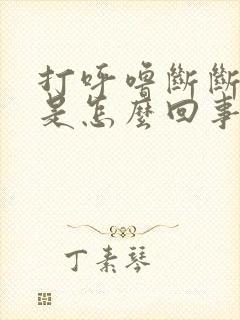 打呼噜斷斷
是怎麼回事
丁素琴